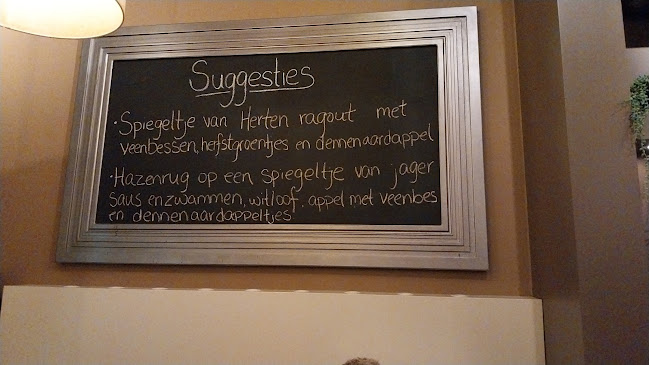 Suggesties
· Spiegeltje van Herten ragout met
veenbessen, hefstgroentjes en dennenaardappel
· Hazenrug op een spiegeltje van jager
saus en zwammen, witloof, appel met veenbes
en dennenaardappeltjes